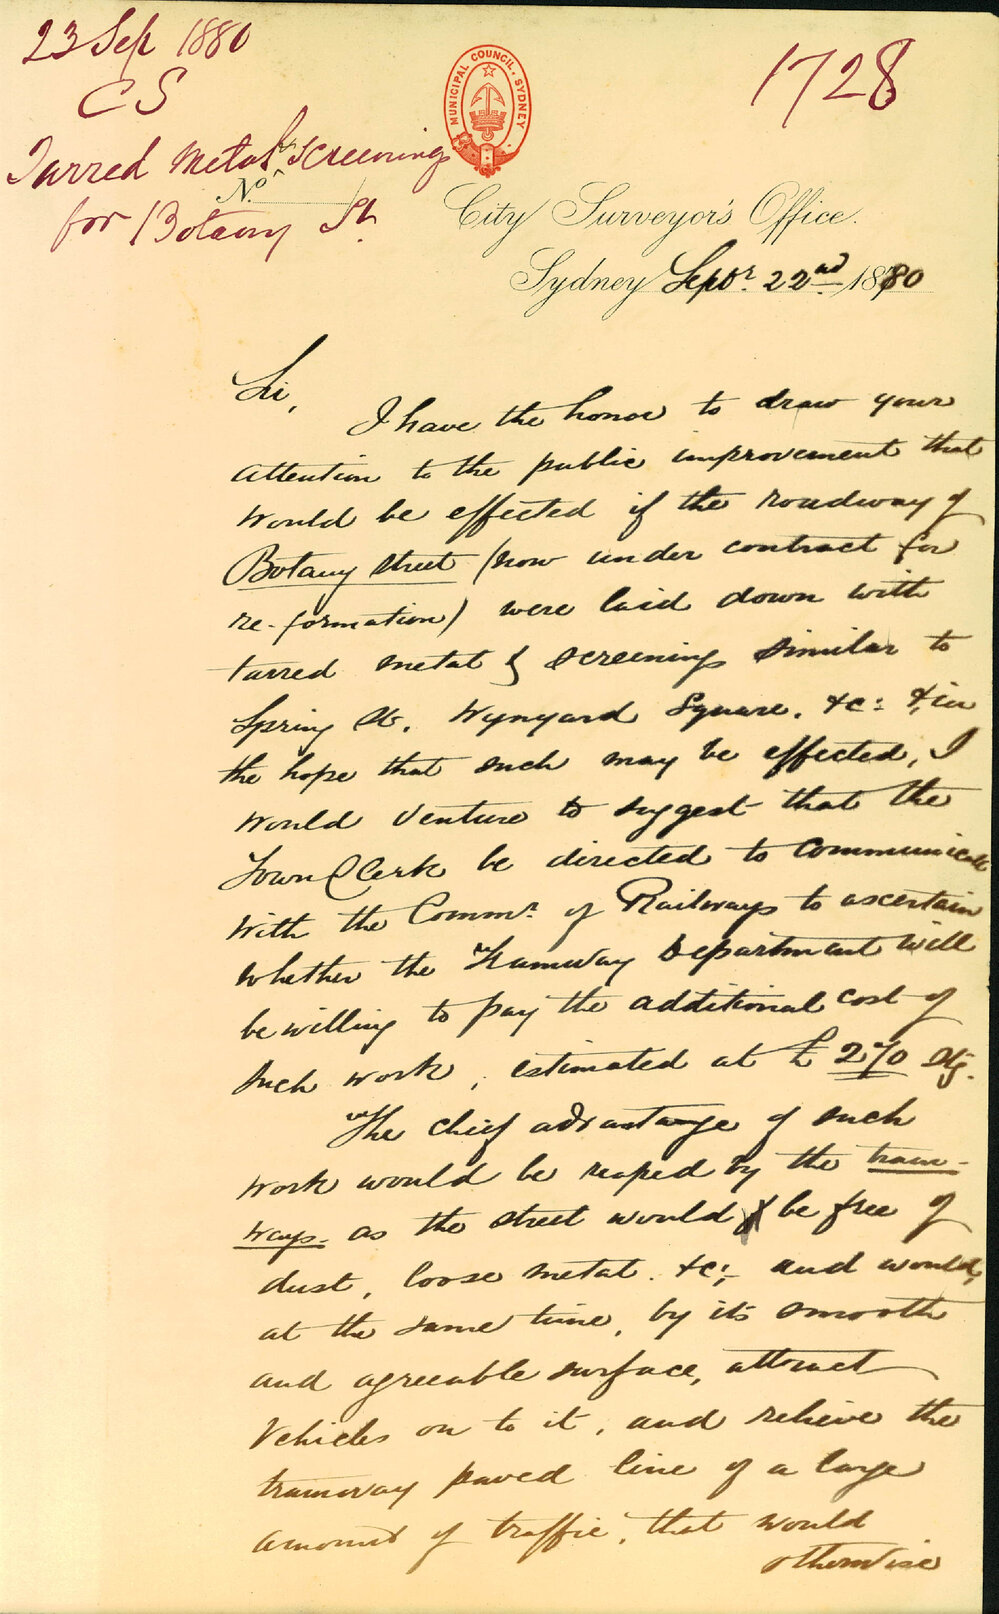 23 Sep 1880
CS
Tarred Metal & Screenings
for Botany St
1728
MUNICIPAL COUNCIL, SYDNEY
No.
City Surveyor's Office.
Sydney Septr. 22nd 1880
Sir,
I have the honor to draw your
attention to the public improvement that
would be effected if the roadway of
Botany Street (now under contract for
re-formation) were laid down with
tarred metal & screenings similar to
Spring St. Wynyard Square. &c: & in
the hope that such may be effected, I
would venture to suggest that the
Town Clerk be directed to communicate
with the Commr. of Railways to ascertain
whether the Tramway Department will
be willing to pay the additional cost of
such work, estimated at £270 Stg.
The chief advantage of such
work would be reaped by the tram-
ways- as the street would be free of
dust, loose metal. &c; and would,
at the same time, by it's smooth
and agreeable surface, attract
vehicles on to it, and relieve the
tramway paved line of a large
amount of traffic, that would
otherwise